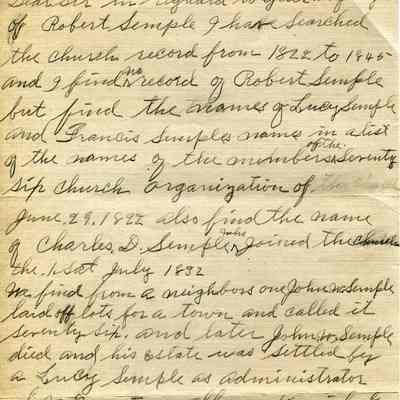 Dear Sir in regard to
of Robert Semple I have Searched
the church record from 1822 to 1845
and I find no record of Robert Semple
but find the names of Lucy Semple
and Francis Semples names in a list
of the names of the members of the Seventy
Six church organization of
June. 29. 1822 also find the name
of Charles. D. Semple who joined the church
the. 1. Sat July 1832
We find from a neighbors one John Semple
laid off lots for a town and called it
Seventy Six. and later John Semple
died and his estate was settled by
a Lucy Semple as administrator